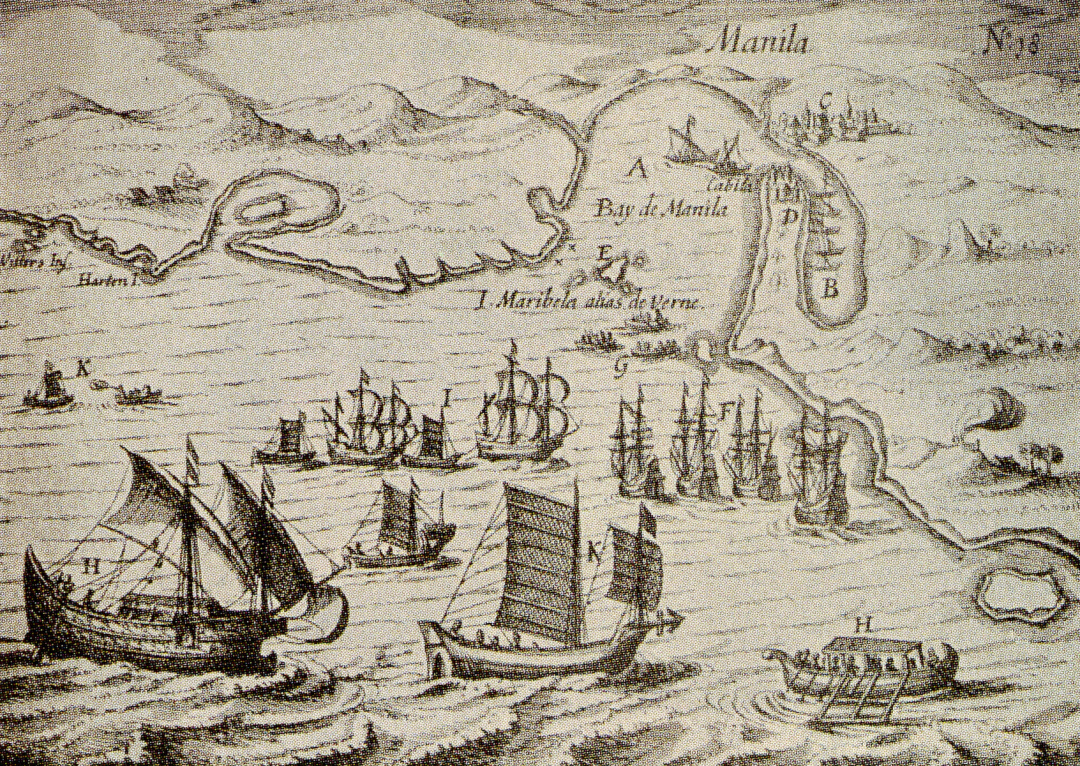 Manila
Nº 18
C
A
Cabita
Bay de Manila
D
E
Witters Inſ.
Harten I.
B
I. Maribela alias de Verne.
G
K
I
F
K
H
H